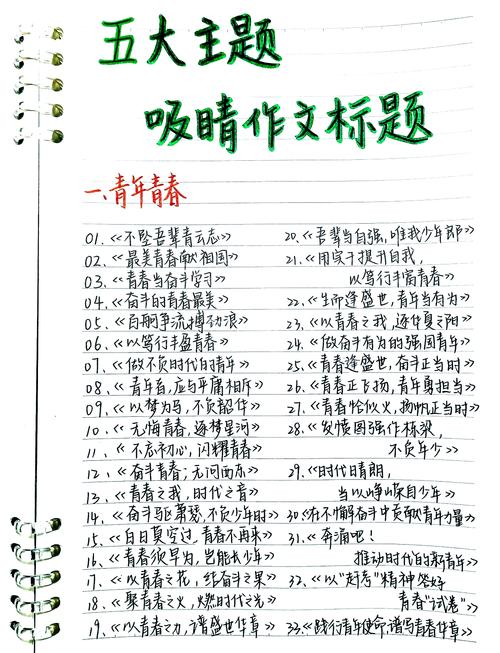 五大主题
吸睛作文标题
一、青年青春
01.《不坠吾辈青云志》
02.《最美青春献祖国》
03.《青春当奋斗学习》
04.《奋斗的青春最美》
05.《百舸争流搏劲浪》
06.《以笃行丰盈青春》
07.《做不负时代的青年》
08.《青年者,应与平庸相斥》
09.《以梦为马,不负韶华》
10.《无悔青春,逐梦星河》
11.《不忘初心,闪耀青春》
12.《奋斗青春;无问西东》
13.《青春之我,时代之音》
14.《奋斗驱萧瑟,不负少年时》
15.《白日莫空过,青春不再来》
16.《青春须早为,岂能长少年》
17.《以青春之花,结奋斗之果》
18.《聚青春之火,燃时代之光》
19.《以青春之力,谱盛世华章》
20.《吾辈当自强,唯我少年郎》
21.《用实干提升自我,
以笃行丰富青春》
22.《生而逢盛世,青年当有为》
23.《以青春之我,逐华夏之阳》
24.《做奋斗有为的强国青年》
25.《青春逢盛世,奋斗正当时》
26.《青春正飞扬,青年勇担当》
27.《青春恰似火,扬帆正当时》
28.《发愤图强作栋梁,
不负年少》
29.《时代日晴朗,
当以峥嵘自少年》
30《在不懈奋斗中贡献青年力量》
31.《奔涌吧!
推动时代的新青年》
32.《以"赶考"精神答好
青春"试卷"》
33.《践行青年使命,谱写青春华章》